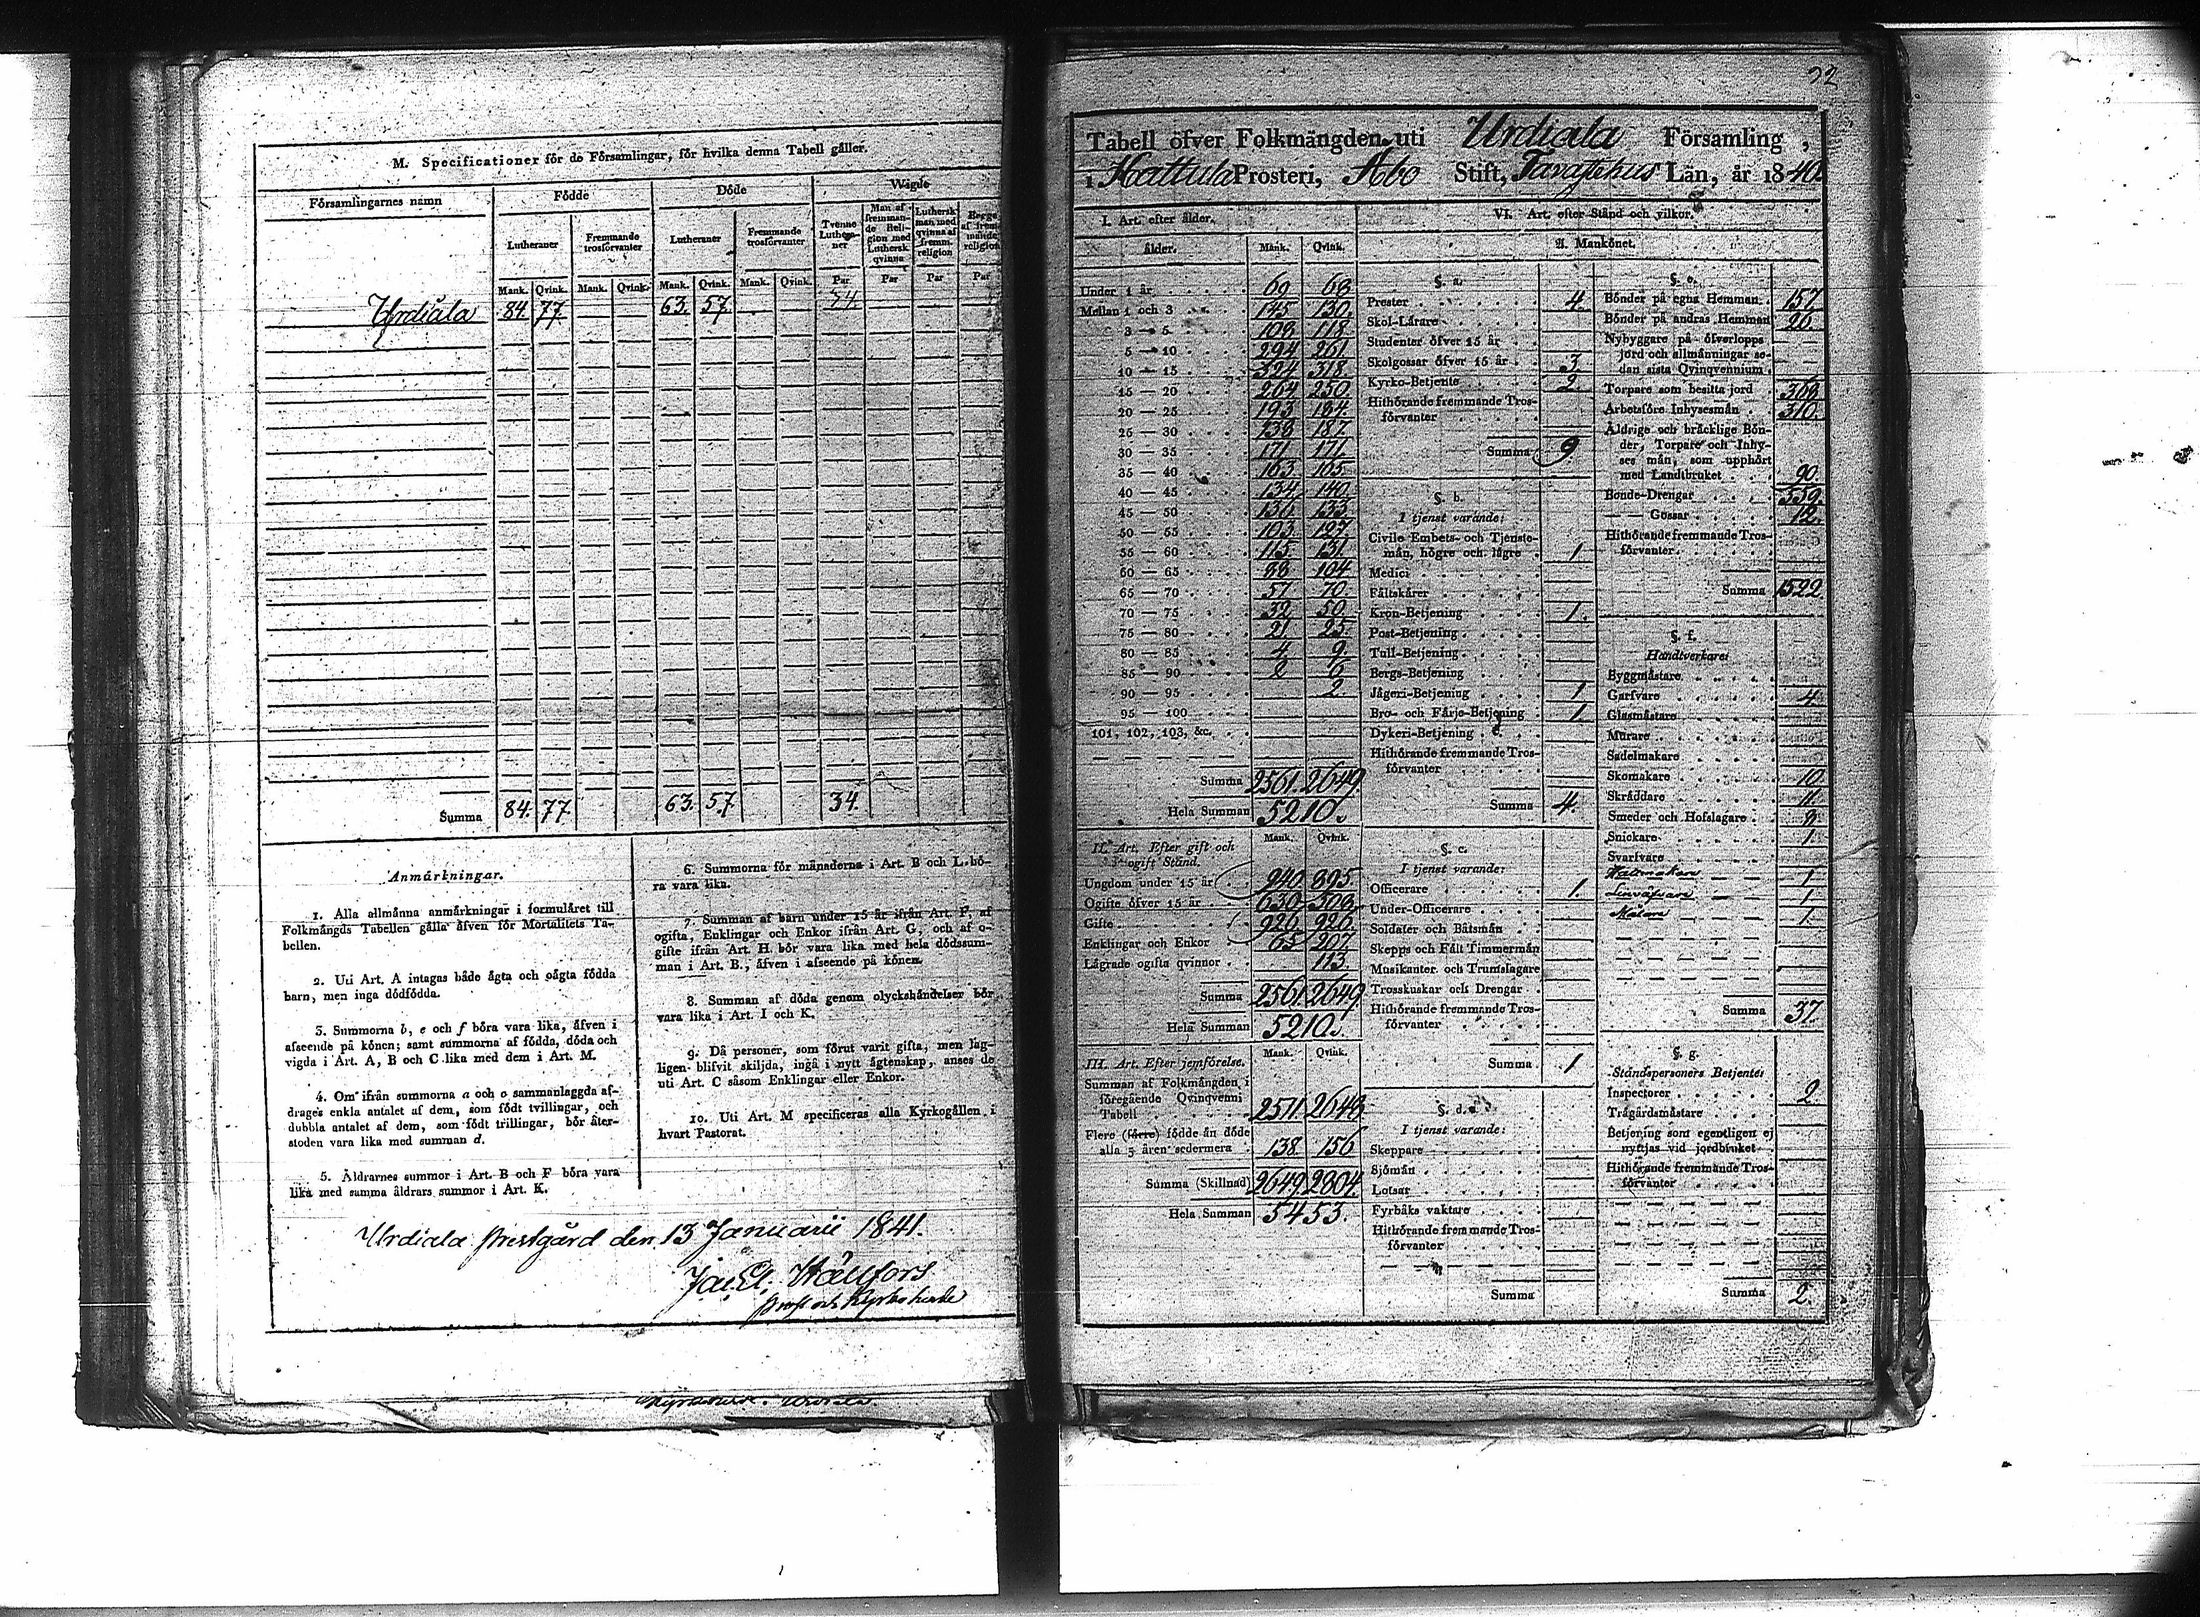 M. Specificationer för de Församlingar, för hvilka denna Tabell gäller.
Församlingarnes namn | Födde | Döde | Wigde
Lutheraner | Fremmande trosförvanter | Lutheraner | Fremmande trosförvanter | Tvenne Lutheraner | Man af fremmande Religion med Luthersk qvinna | Luthersk man med qvinna af fremm. religion | Begge af fremmande religion
Mank. | Qvink. | Mank. | Qvink. | Mank. | Qvink. | Mank. | Qvink. | Par | Par | Par | Par
Urdiala 84. 77. 63. 57. 34.
Summa 84. 77. 63. 57. 34.
Anmärkningar.
1. Alla allmänna anmärkningar i formuläret till
Folkmängds Tabellen gälla äfven för Mortalitets Ta-
bellen.
2. Uti Art. A intagas både ägta och oägta födda
barn, men inga dödfödda.
3. Summorna b, e och f böra vara lika, äfven i
afseende på könen; samt summorna af födda, döda och
vigda i Art. A, B och C lika med dem i Art. M.
4. Om ifrån summorna a och c sammanlaggda af-
drages enkla antalet af dem, som födt tvillingar, och
dubbla antalet af dem, som födt trillingar, bör åter-
stoden vara lika med summan d.
5. Åldrarnes summor i Art. B och F böra vara
lika med samma åldrars summor i Art. K.
6. Summorna för månaderna i Art. B och L bö-
ra vara lika.
7. Summan af barn under 15 år ifrån Art. F, af
ogifta, Enklingar och Enkor ifrån Art. G, och af o-
gifte ifrån Art. H bör vara lika med hela dödssum-
man i Art. B., äfven i afseende på könen.
8. Summan af döda genom olyckshändelser bör
vara lika i Art. I och K.
9. Då personer, som förut varit gifta, men lag-
ligen blifvit skiljda, ingå i nytt ägtenskap, anses de
uti Art. C såsom Enklingar eller Enkor.
10. Uti Art. M specificeras alla Kyrkogällen i
hvart Pastorat.
Urdiala Prestgård den 13 Januarii 1841.
Hällfors
Prost och Kyrkoherde
22
Tabell öfver Folkmängden uti Urdiala Församling,
i Hattula Prosteri, Åbo Stift, Tavastehus Län, år 1840.
I. Art. efter ålder.
Ålder. Mank. Qvink.
Under 1 år 69 68
Mellan 1 och 3 145 130.
3 — 5 108 118
5 — 10 294 261.
10 — 15 324 318.
15 — 20 264 250.
20 — 25 193 184.
25 — 30 138 187.
30 — 35 171 171.
35 — 40 163 165
40 — 45 134 140.
45 — 50 136 133.
50 — 55 103 127.
55 — 60 115 131
60 — 65 88 104
65 — 70 57 70.
70 — 75 32 50.
75 — 80 21 25.
80 — 85 4 9.
85 — 90 2 6
90 — 95 2.
95 — 100
101, 102, 103, &c.
Summa 2561. 2649.
Hela Summan 5210.
II. Art. Efter gift och ogift Stånd. Mank. Qvink.
Ungdom under 15 år 940. 895
Ogifte öfver 15 år 630 508.
Gifte 926. 926.
Enklingar och Enkor 65 207.
Lägrade ogifta qvinnor 113.
Summa 2561. 2649.
Hela Summan 5210.
III. Art. Efter jemförelse. Mank. Qvink.
Summan af Folkmängden i
föregående Qvinqvenni
Tabell 2511. 2648
Flere (färre) födde än döde
alla 5 åren sedermera 138. 156
Summa (Skillnad) 2649. 2804.
Hela Summan 5453.
VI. Art. efter Stånd och vilkor.
A. Mankönet.
§. a.
Prester 4.
Skol-Lärare
Studenter öfver 15 år
Skolgossar öfver 15 år 3
Kyrko-Betjente 2
Hithörande fremmande Tros-
förvanter
Summa 9
§. b.
I tjenst varande:
Civile Embets- och Tjenste-
män, högre och lägre 1
Medici
Fältskärer
Kron-Betjening 1.
Post-Betjening
Tull-Betjening
Bergs-Betjening
Jägeri-Betjening 1
Bro- och Färje-Betjening 1.
Dykeri-Betjening
Hithörande fremmande Tros-
förvanter
Summa 4.
§. c.
I tjenst varande:
Officerare 1.
Under-Officerare
Soldater och Båtsmän
Skepps och Fält Timmermän
Musikanter och Trumslagare
Trosskuskar och Drengar
Hithörande fremmande Tros-
förvanter
Summa 1
§. d.
I tjenst varande:
Skeppare
Sjömän
Lotsar
Fyrbåks vaktare
Hithörande fremmande Tros-
förvanter
Summa
§. e.
Bönder på egna Hemman 157.
Bönder på andras Hemman 26.
Nybyggare på öfverlopps
jord och allmänningar se-
dan sista Qvinqvennium
Torpare som besitta jord 368
Arbetsföre Inhysesmän 310.
Åldrige och bräcklige Bön-
der, Torpare och Inhy-
ses män, som upphört
med Landtbruket 90.
Bonde-Drengar 559.
— — Gossar 12.
Hithörande fremmande Tros-
förvanter
Summa 1522
§. f.
Handtverkare:
Byggmästare
Garfvare 4
Glasmästare
Murare
Sadelmakare
Skomakare 10
Skräddare 11.
Smeder och Hofslagare 8
Snickare 1.
Svarfvare
Hattmakare 1
1
Målare 1.
Summa 37.
§. g.
Ståndspersoners Betjente:
Inspectorer 2
Trägårdsmästare
Betjening som egentligen ej
nyttjas vid jordbruket
Hithörande fremmande Tros-
förvanter
Summa 2.